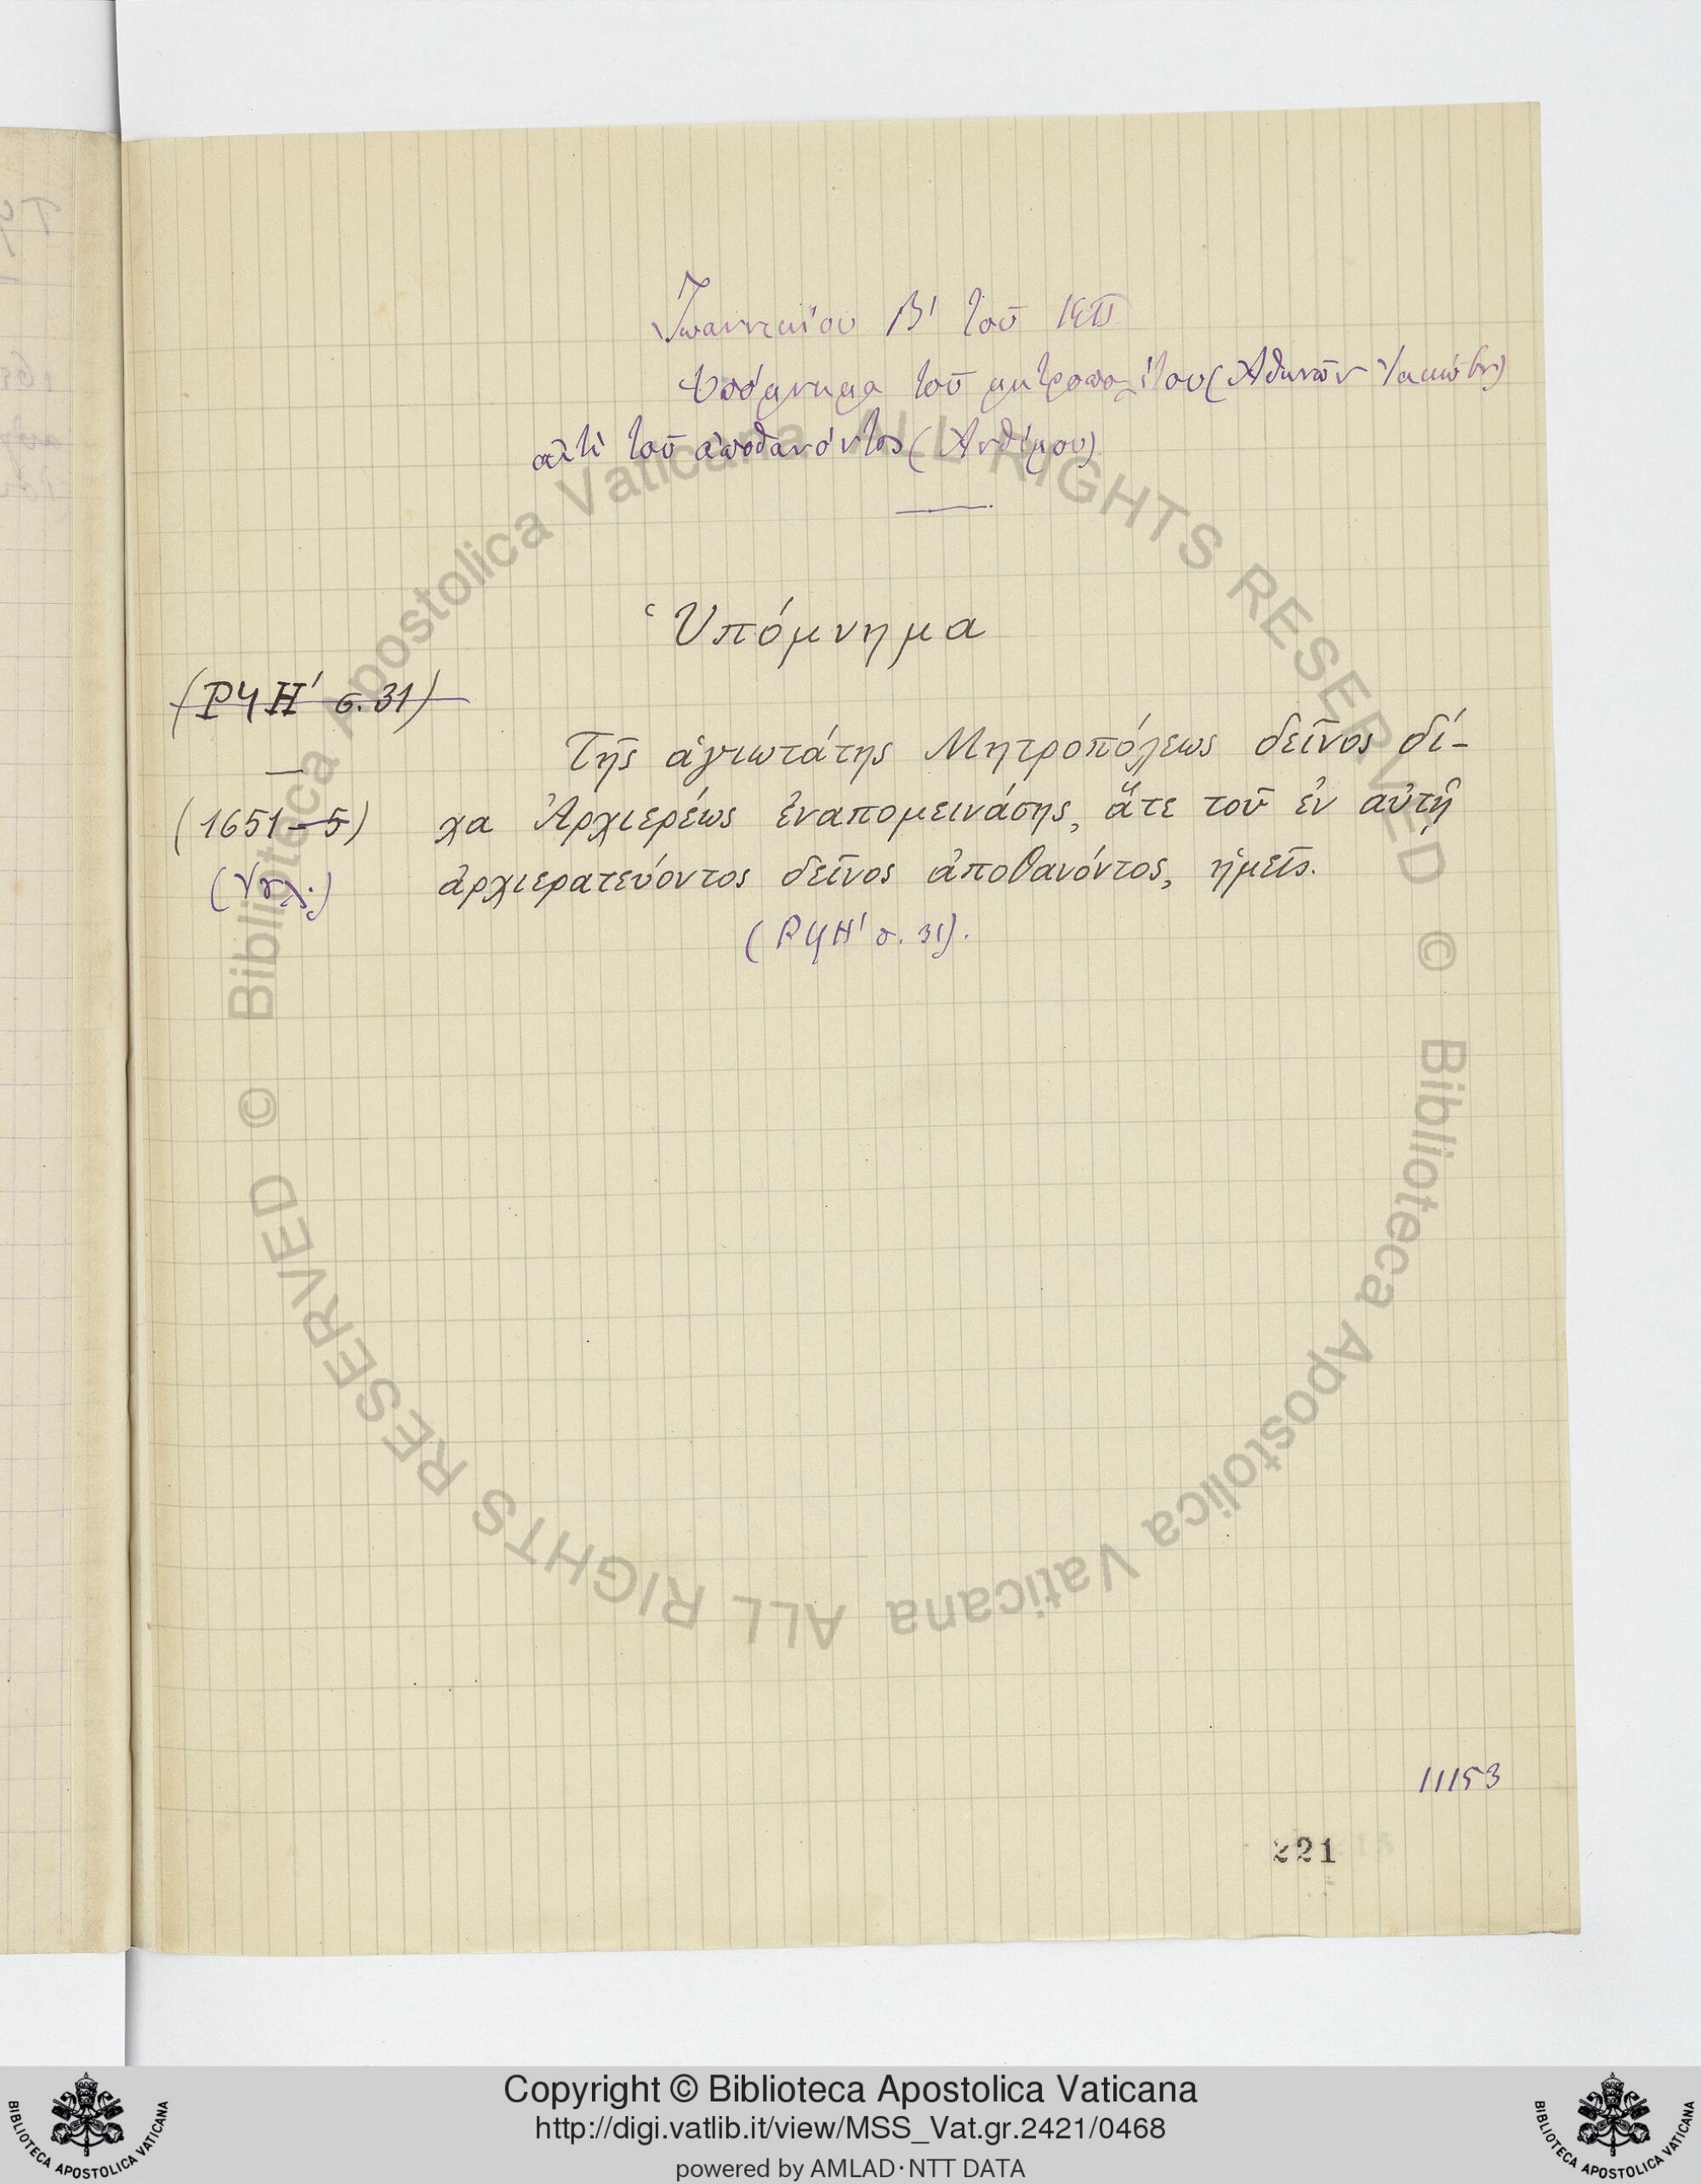 Ἰωαννικίου Β' τοῦ ΚΠ
Ὑπόμνημα τοῦ μητροπολίτου (Ἀθηνῶν
ἀντὶ τοῦ ἀποθανόντος (Ἀνθίμου)
Ὑπόμνημα
(ΡЧΗ' σ. 31)
Τῆς ἁγιωτάτης Μητροπόλεως δεῖνος δί-
(1651-5) χα Ἀρχιερέως ἐναπομεινάσης, ἅτε τοῦ ἐν αὐτῇ
ἀρχιερατεύοντος δεῖνος ἀποθανόντος, ἡμεῖς.
(ΡЧΗ' σ. 31).
11153
221
© Biblioteca Apostolica Vaticana ALL RIGHTS RESERVED
© Biblioteca Apostolica Vaticana ALL RIGHTS RESERVED
Copyright © Biblioteca Apostolica Vaticana
http://digi.vatlib.it/view/MSS_Vat.gr.2421/0468
powered by AMLAD·NTT DATA
BIBLIOTECA APOSTOLICA VATICANA
BIBLIOTECA APOSTOLICA VATICANA